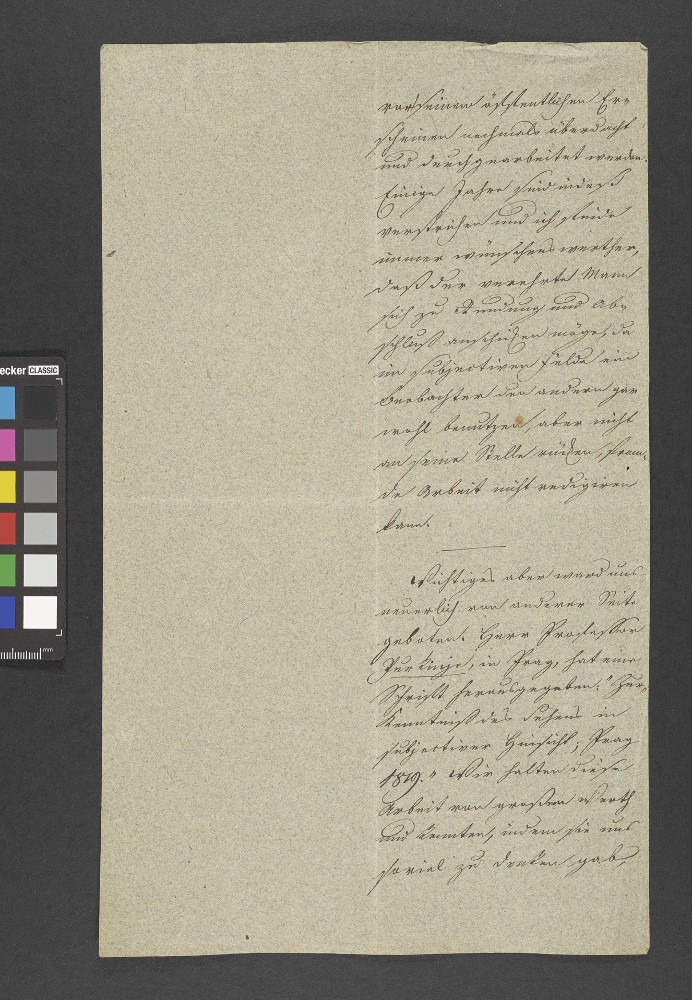 vor seinem öffentlichen Er-
scheinen nochmals überdacht
und durchgearbeitet werden.
Einige Jahre sind indeß
verstrichen und ich finde
immer wünschenswerther,
daß der verehrte Mann
sich zu Rundung und Ab-
schluß anschicken möge, da
im subjectiven Felde ein
Beobachter den andern gar
wohl benutzen, aber nicht
an seine Stelle rücken, frem-
de Arbeit nicht redigiren
kann.
Wichtiges aber ward uns
neuerlich von anderer Seite
geboten. Herr Professor
Purkinje, in Prag, hat eine
Schrift herausgegeben: "Zur
Kenntniß des Sehens in
subjectiver Hinsicht, Prag
1819." Wir halten diese
Arbeit von großem Werth
und konnten, indem sie uns
soviel zu denken gab,
ecker CLASSIC
mm